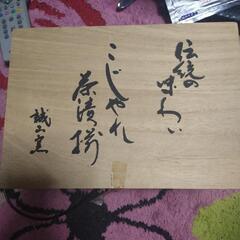 伝統の
味わい
こじゃれ
茶漬揃
誠山窯